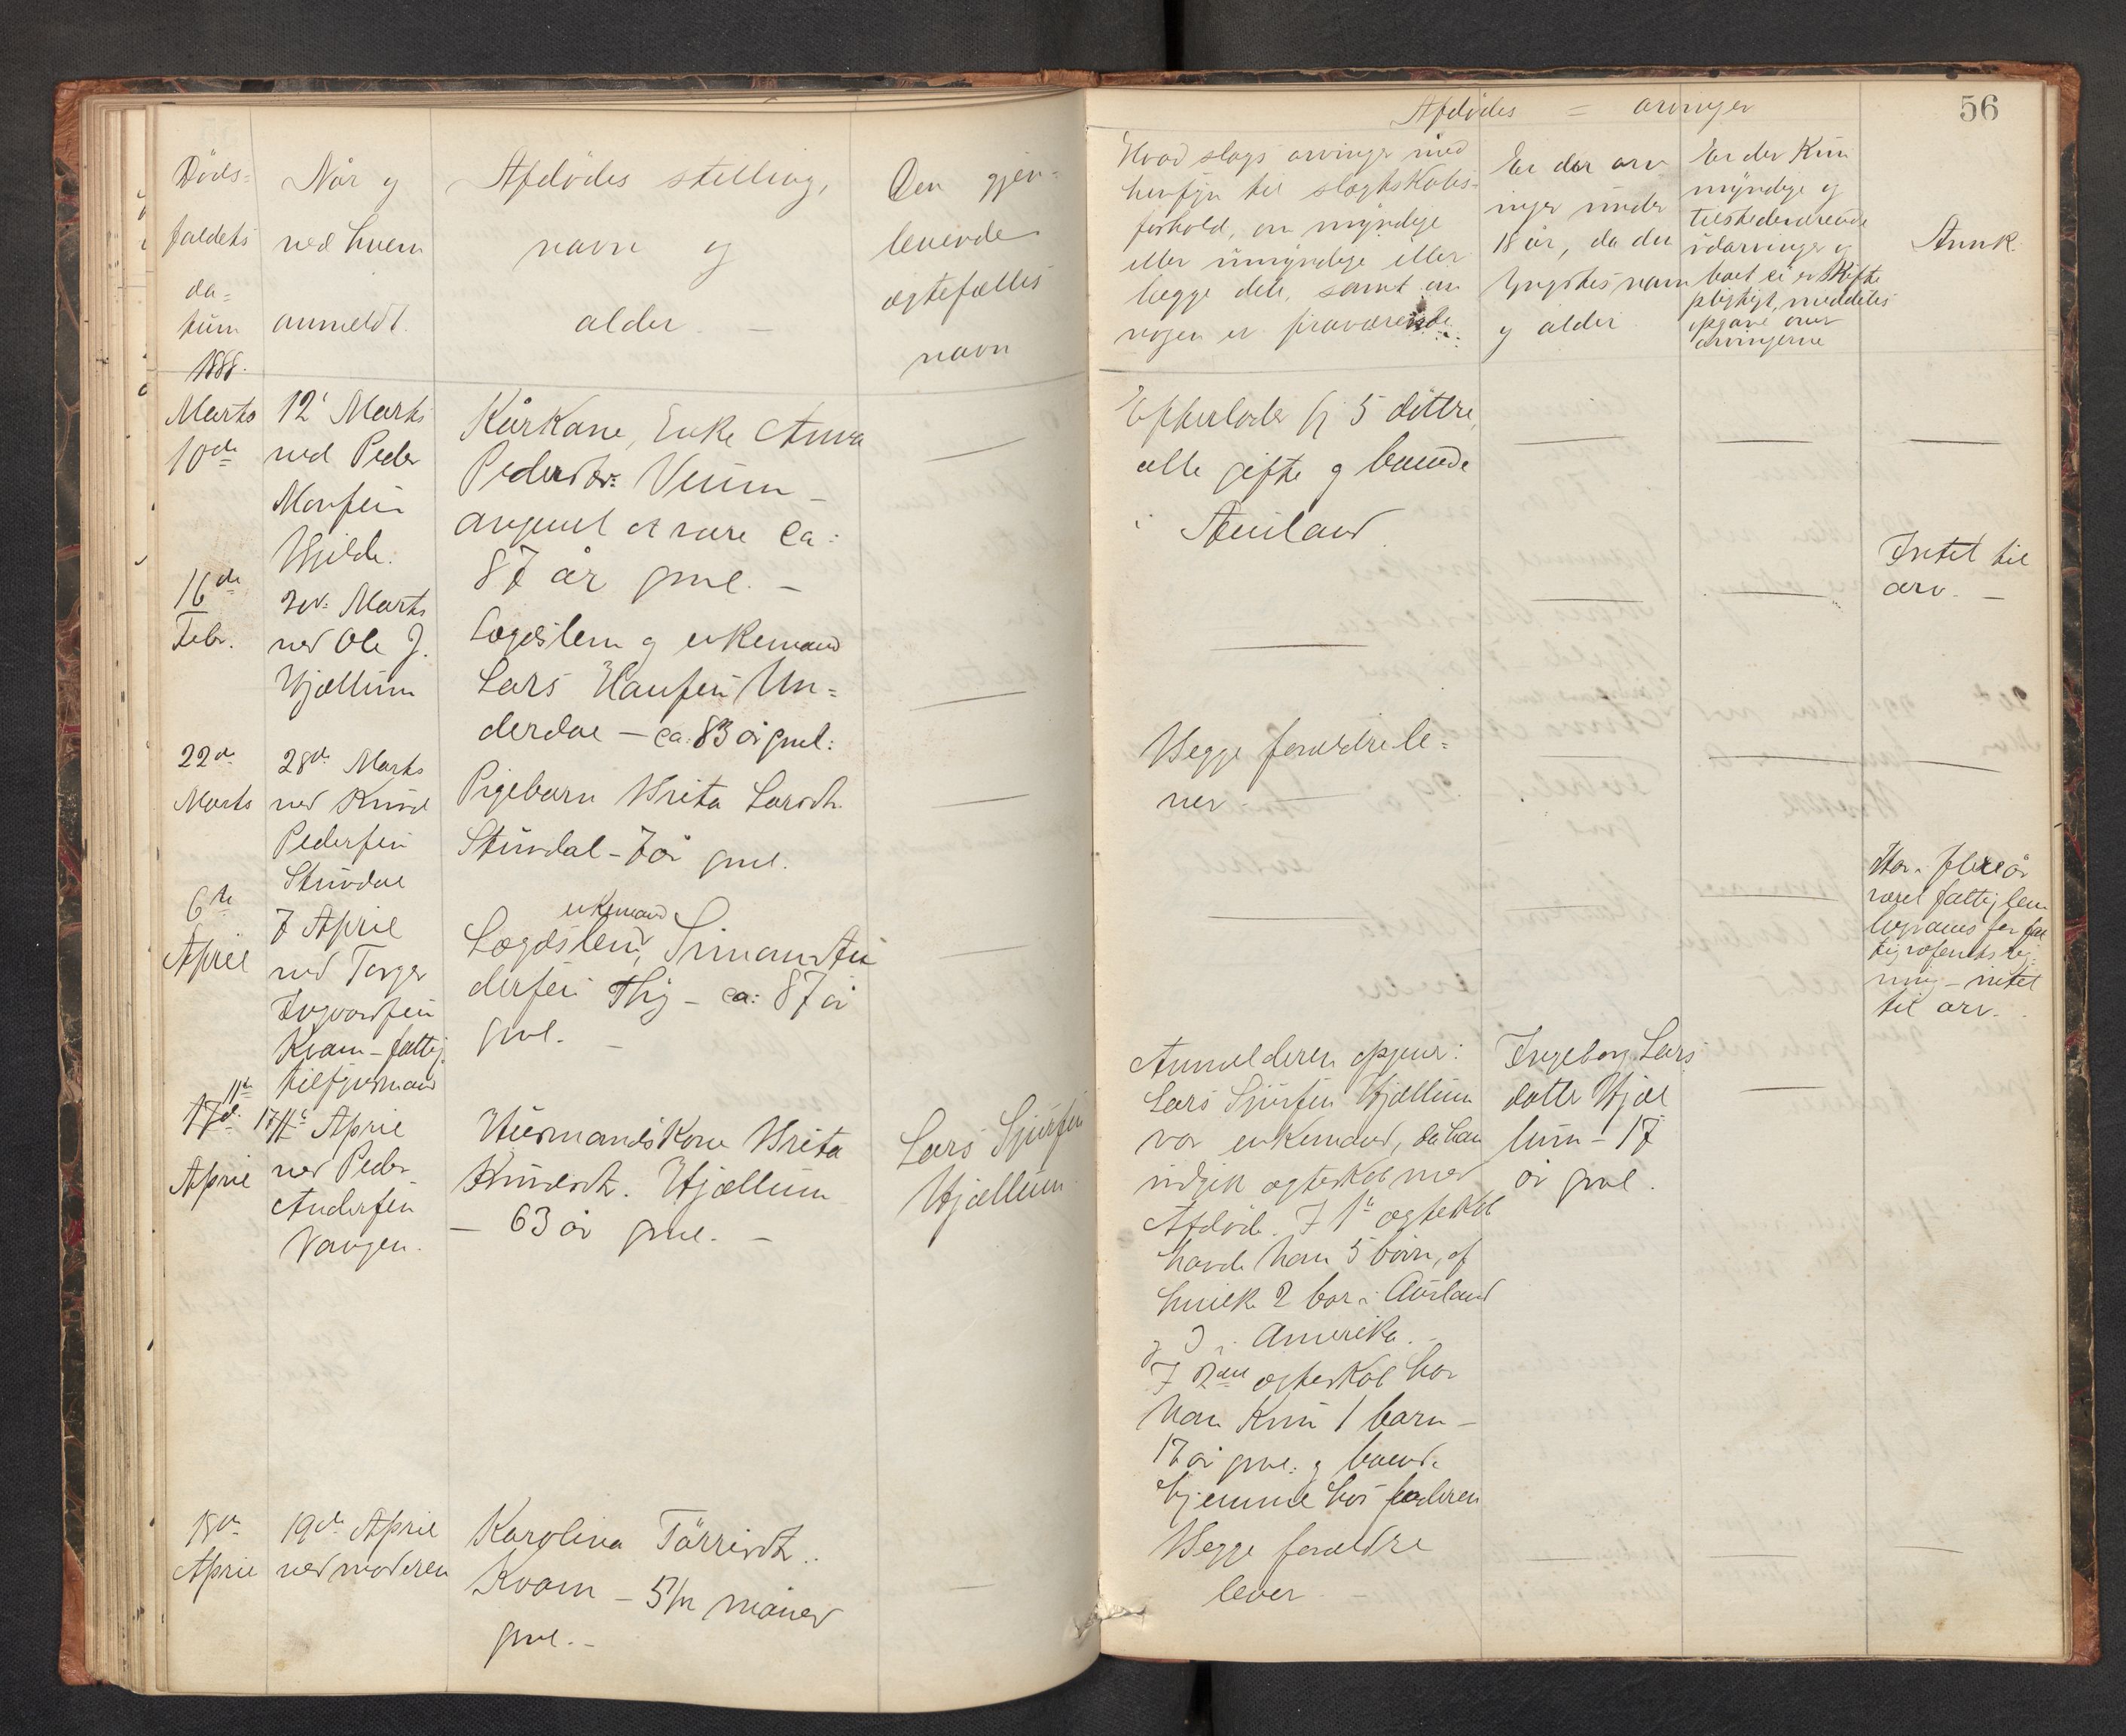 Døds-
faldets
da-
tum
1888.
Når og
ved hvem
anmeldt.
Afdødes stilling,
navn og
alder. —
Den gjen-
levende
ægtefælles
navn
Afdødes = arvinger
56
Hvad slags arvinger med
hensyn til slægtskabs-
forhold, om myndige
eller umyndige eller
begge dele, samt om
nogen er fraværende
Er der arv
inger under
18 år, da den
yngstes navn
og alder
Er der kun
myndige og
tilstedeværende
udarvinger og
boet ei er skifte
pligtigt, meddeles
opgave over
arvingerne
Anmk.
Marts
10de
12' Marts
ved Peder
Monsen
Hjilde.
Kårkone, Enke Anna
Pedersdtr: Veum —
angivet at være ca:
87 år gml. —
—
Efterlader sig 5 døttre,
alle gifte og boende
i Aurland.
—
—
—
16de
Febr.
Marts
ved Ole J.
Hjællum
Lægdslem og enkemand
Lars Hansen Un-
derdal — ca: 83 år gml:
—
—
—
—
Intet til
arv. —
22de
Marts
28de Marts
ved Knud
Pedersen
Stundal
Pigebarn Brita Larsdtr.
Stundal — 7 år gml.
—
Begge forældre le-
ver —
—
—
—
6te
April
7 April
ved Torger
Ingvardsen
Kvam — fattig-
tilsynsmand
enkemand
Lægdslem, Simon An
dersen Thy — ca: 87 år
gml. —
—
—
—
—
Har i flere år
været fattiglem
til arv.
11te
17d.
April
17 11te April
ved Peder
Andersen
Vangen.
Husmandskone Brita
Knudsdtr. Hjællum
— 63 år gml. —
Lars Sjursen
Hjællum
Anmelderen opgiver:
Lars Sjursen Hjællum
var enkemand, da han
indgik ægteskab med
Afdøde. I 1te ægteskab
havde han 5 børn, af
hvilke 2 bor i Aurland
og 3 i Amerika. —
I 2det ægteskab har
han kun 1 barn —
17 år gml. og boende
hjemme hos faderen
Ingeborg Lars
datter Hjæl
lum — 17
år gml.
—
18de
April
19de April
ved moderen
Karolina Tørrisdtr.
Kvam — 5 1/2 måned
gml. —
—
Begge forældre
lever —
—
—
—